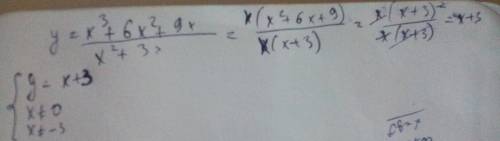 y = x³+6x²+9x / x²+3x = x(x²+6x+9) / x(x+3) = x(x+3)² / x(x+3) = x+3
{ y = x+3
x≠0
x≠-3